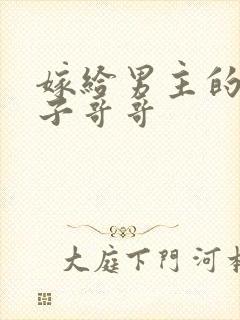 嫁給男主的
子哥哥
大庭下門河